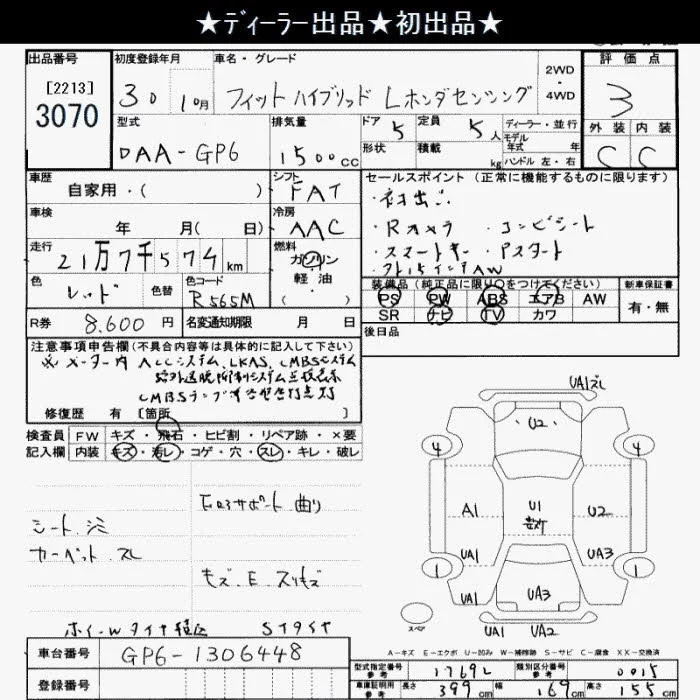 ★ディーラー出品★初出品★
出品番号 初度登録年月 車名・グレード 2WD・4WD 評価点
[2213]
3070
30 10月 フィットハイブリッド Lホンダセンシング
3
型式 排気量 ドア 5 定員 5人 ディーラー・並行
モデル年式 年
外装 内装
DAA-GP6 1500cc 形状 積載 kg ハンドル 左・右
C C
車歴 シフト セールスポイント (正常に機能するものに限ります)
自家用・( ) FAT
・ネコ出し
車検 冷房
年 月( 日) AAC
・Rカメラ ・コンビシート
・スマートキー ・Pスタート
走行 燃料
21万7千574km ガソリン
・外15インチAW
軽油
( )
色 色替 色コード
レッド R565M
装備品 (純正品に限り○をつけてください) 新車保証書
PS PW ABS エアB AW 有・無
SR ナビ TV カワ
R券 8.600円 名変通知期限 月 日
後日品
注意事項申告欄(不具合内容等は具体的に記入して下さい)
※メーター内 ACCシステム、LKAS、CMBSシステム
路外逸脱抑制システム点検表示
CMBSランプ
修復歴 有 [箇所 ]
検査員 FW キズ・飛石・ヒビ割・リペア跡・×要
記入欄 内装 キズ・汚レ・コゲ・穴・スレ・キレ・破レ
サポート曲り
シート、シミ
カーペット、スレ
キズ、E、スリキズ
S1タイヤ
車台番号 GP6-1306448
登録番号
UA1
U2
4 4
A1 U1 U2
UA1 UA3
1 1
UA1 UA3
スペア
UA1 UA2
A-キズ E-エクボ U-凹み W-補修跡 S-サビ C-腐食 XX-交換済
型式指定番号 参考 17692 類別区分番号 参考 0015
車庫証明用 参考 長さ 399cm 幅 169cm 高さ 155cm